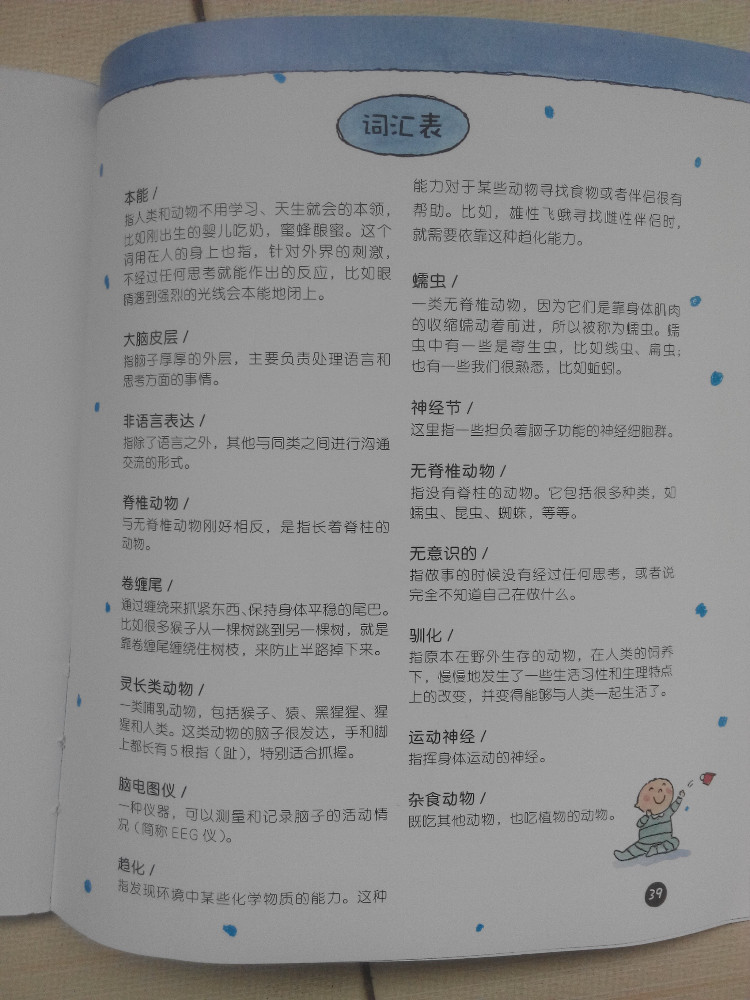 词汇表
本能 /
指人类和动物不用学习、天生就会的本领，
比如刚出生的婴儿吃奶，蜜蜂酿蜜。这个
词用在人的身上也指，针对外界的刺激，
不经过任何思考就能作出的反应，比如眼
睛遇到强烈的光线会本能地闭上。
大脑皮层 /
指脑子厚厚的外层，主要负责处理语言和
思考方面的事情。
非语言表达 /
指除了语言之外，其他与同类之间进行沟通
交流的形式。
脊椎动物 /
与无脊椎动物刚好相反，是指长着脊柱的
动物。
卷缠尾 /
通过缠绕来抓紧东西、保持身体平稳的尾巴。
比如很多猴子从一棵树跳到另一棵树，就是
靠卷缠尾缠绕住树枝，来防止半路掉下来。
灵长类动物 /
一类哺乳动物，包括猴子、猿、黑猩猩、猩
猩和人类。这类动物的脑子很发达，手和脚
上都长有5根指（趾），特别适合抓握。
脑电图仪 /
一种仪器，可以测量和记录脑子的活动情
况（简称 EEG 仪）。
趋化 /
指发现环境中某些化学物质的能力。这种
能力对于某些动物寻找食物或者伴侣很有
帮助。比如，雄性飞蛾寻找雌性伴侣时，
就需要依靠这种趋化能力。
蠕虫 /
一类无脊椎动物，因为它们是靠身体肌肉
的收缩蠕动着前进，所以被称为蠕虫。蠕
虫中有一些是寄生虫，比如线虫、扁虫；
也有一些我们很熟悉，比如蚯蚓。
神经节 /
这里指一些担负着脑子功能的神经细胞群。
无脊椎动物 /
指没有脊柱的动物。它包括很多种类，如
蠕虫、昆虫、蜘蛛，等等。
无意识的 /
指做事的时候没有经过任何思考，或者说
完全不知道自己在做什么。
驯化 /
指原本在野外生存的动物，在人类的饲养
下，慢慢地发生了一些生活习性和生理特点
上的改变，并变得能够与人类一起生活了。
运动神经 /
指挥身体运动的神经。
杂食动物 /
既吃其他动物，也吃植物的动物。
39